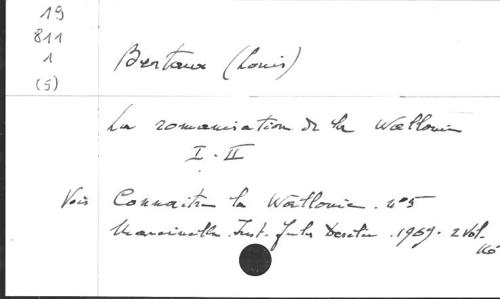 19
811
1
(5)
Bertaux (Louis)
La romanisation de la Wallonie
I. II
Vois Connaître la Wallonie. n°5
Marcinelle. Inst. Jules Destrée. 1969. 2 vol.